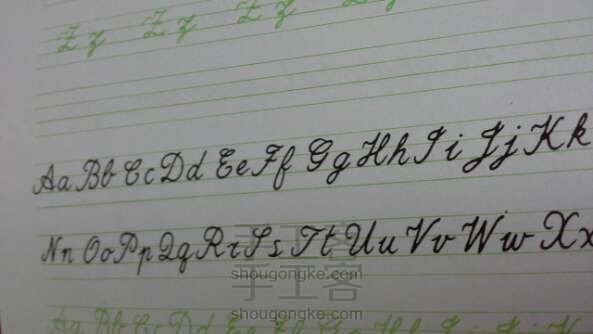 Zz Zz Zz Zz
Aa Bb Cc Dd Ee Ff Gg Hh Ii Jj Kk
Nn Oo Pp Qq Rr Ss Tt Uu Vv Ww Xx
手工客
shougongke.com
手工客
shougongke.com
Aa Bb Cc Dd Ee Ff Gg Hh Ii Jj K